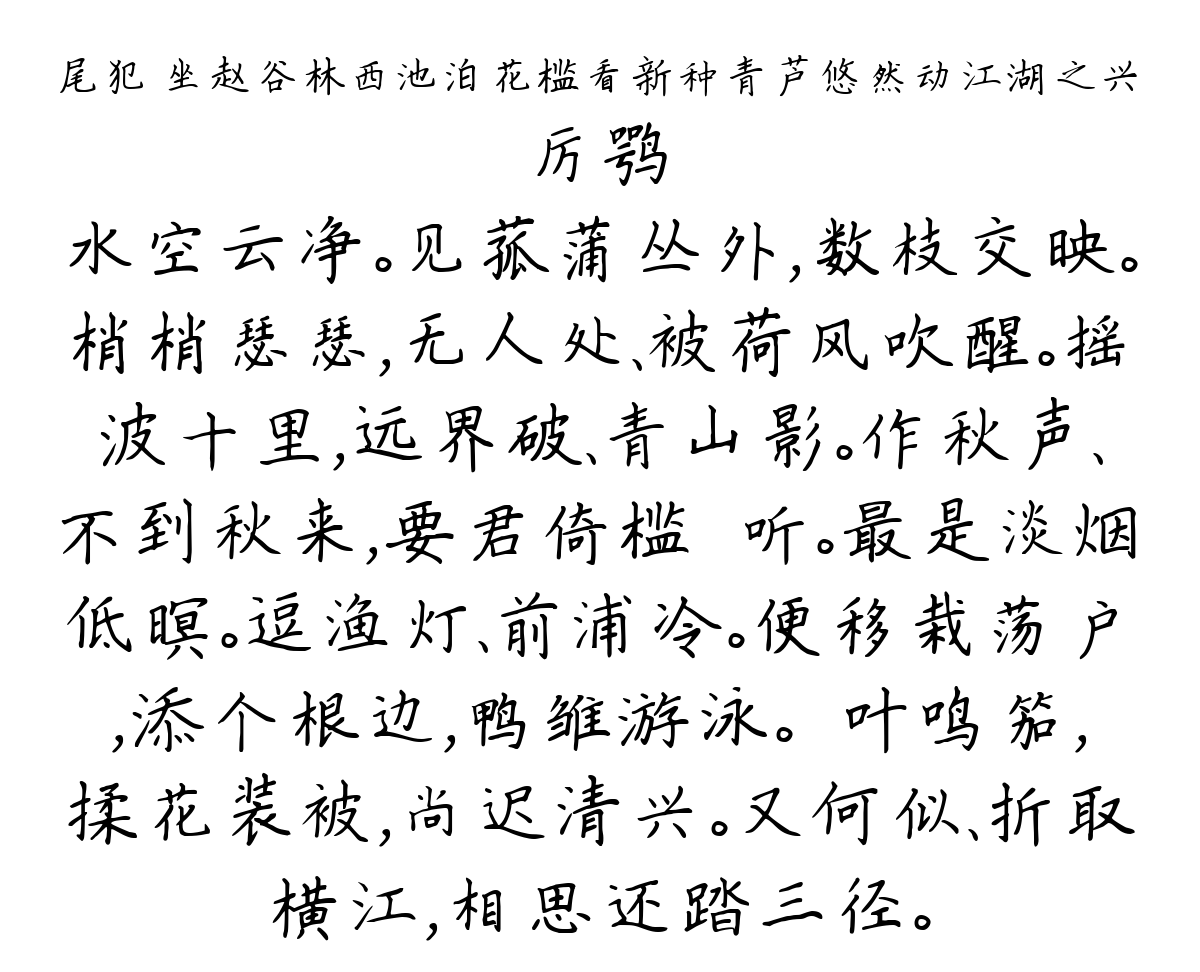 尾犯 坐赵谷林西池泊花槛看新种青芦悠然动江湖之兴
厉鹗
水空云净。见菰蒲丛外,数枝交映。
梢梢瑟瑟,无人处、被荷风吹醒。摇
波十里,远界破、青山影。作秋声、
不到秋来,要君倚槛 听。最是淡烟
低暝。逗渔灯、前浦冷。便移栽荡户
,添个根边,鸭雏游泳。 叶鸣笳,
揉花装被,尚迟清兴。又何似、折取
横江,相思还踏三径。